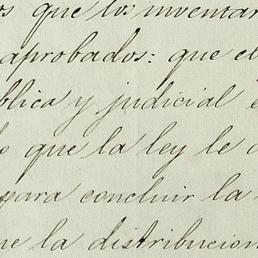 os que los inventar
aprobados: que el
blica y judicial e
lo que la ley le a
para concluir la
ue la distribucion